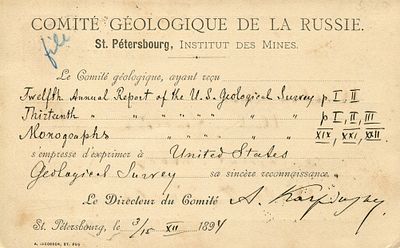 COMITÉ GÉOLOGIQUE DE LA RUSSIE.
file
St. Pétersbourg, INSTITUT DES MINES.
Le Comité géologique, ayant reçu
Twelfth Annual Report of the U.S. Geological Survey p I, II
Thirteenth " " " " " " " p I, II, III
Monographs " " " " " XIX, XXI, XXII.
s'empresse d'exprimer à United States
Geological Survey sa sincère reconnaissance.
Le Directeur du Comité A. Karpinsky
St. Pétersbourg, le 3/15 XII 1894